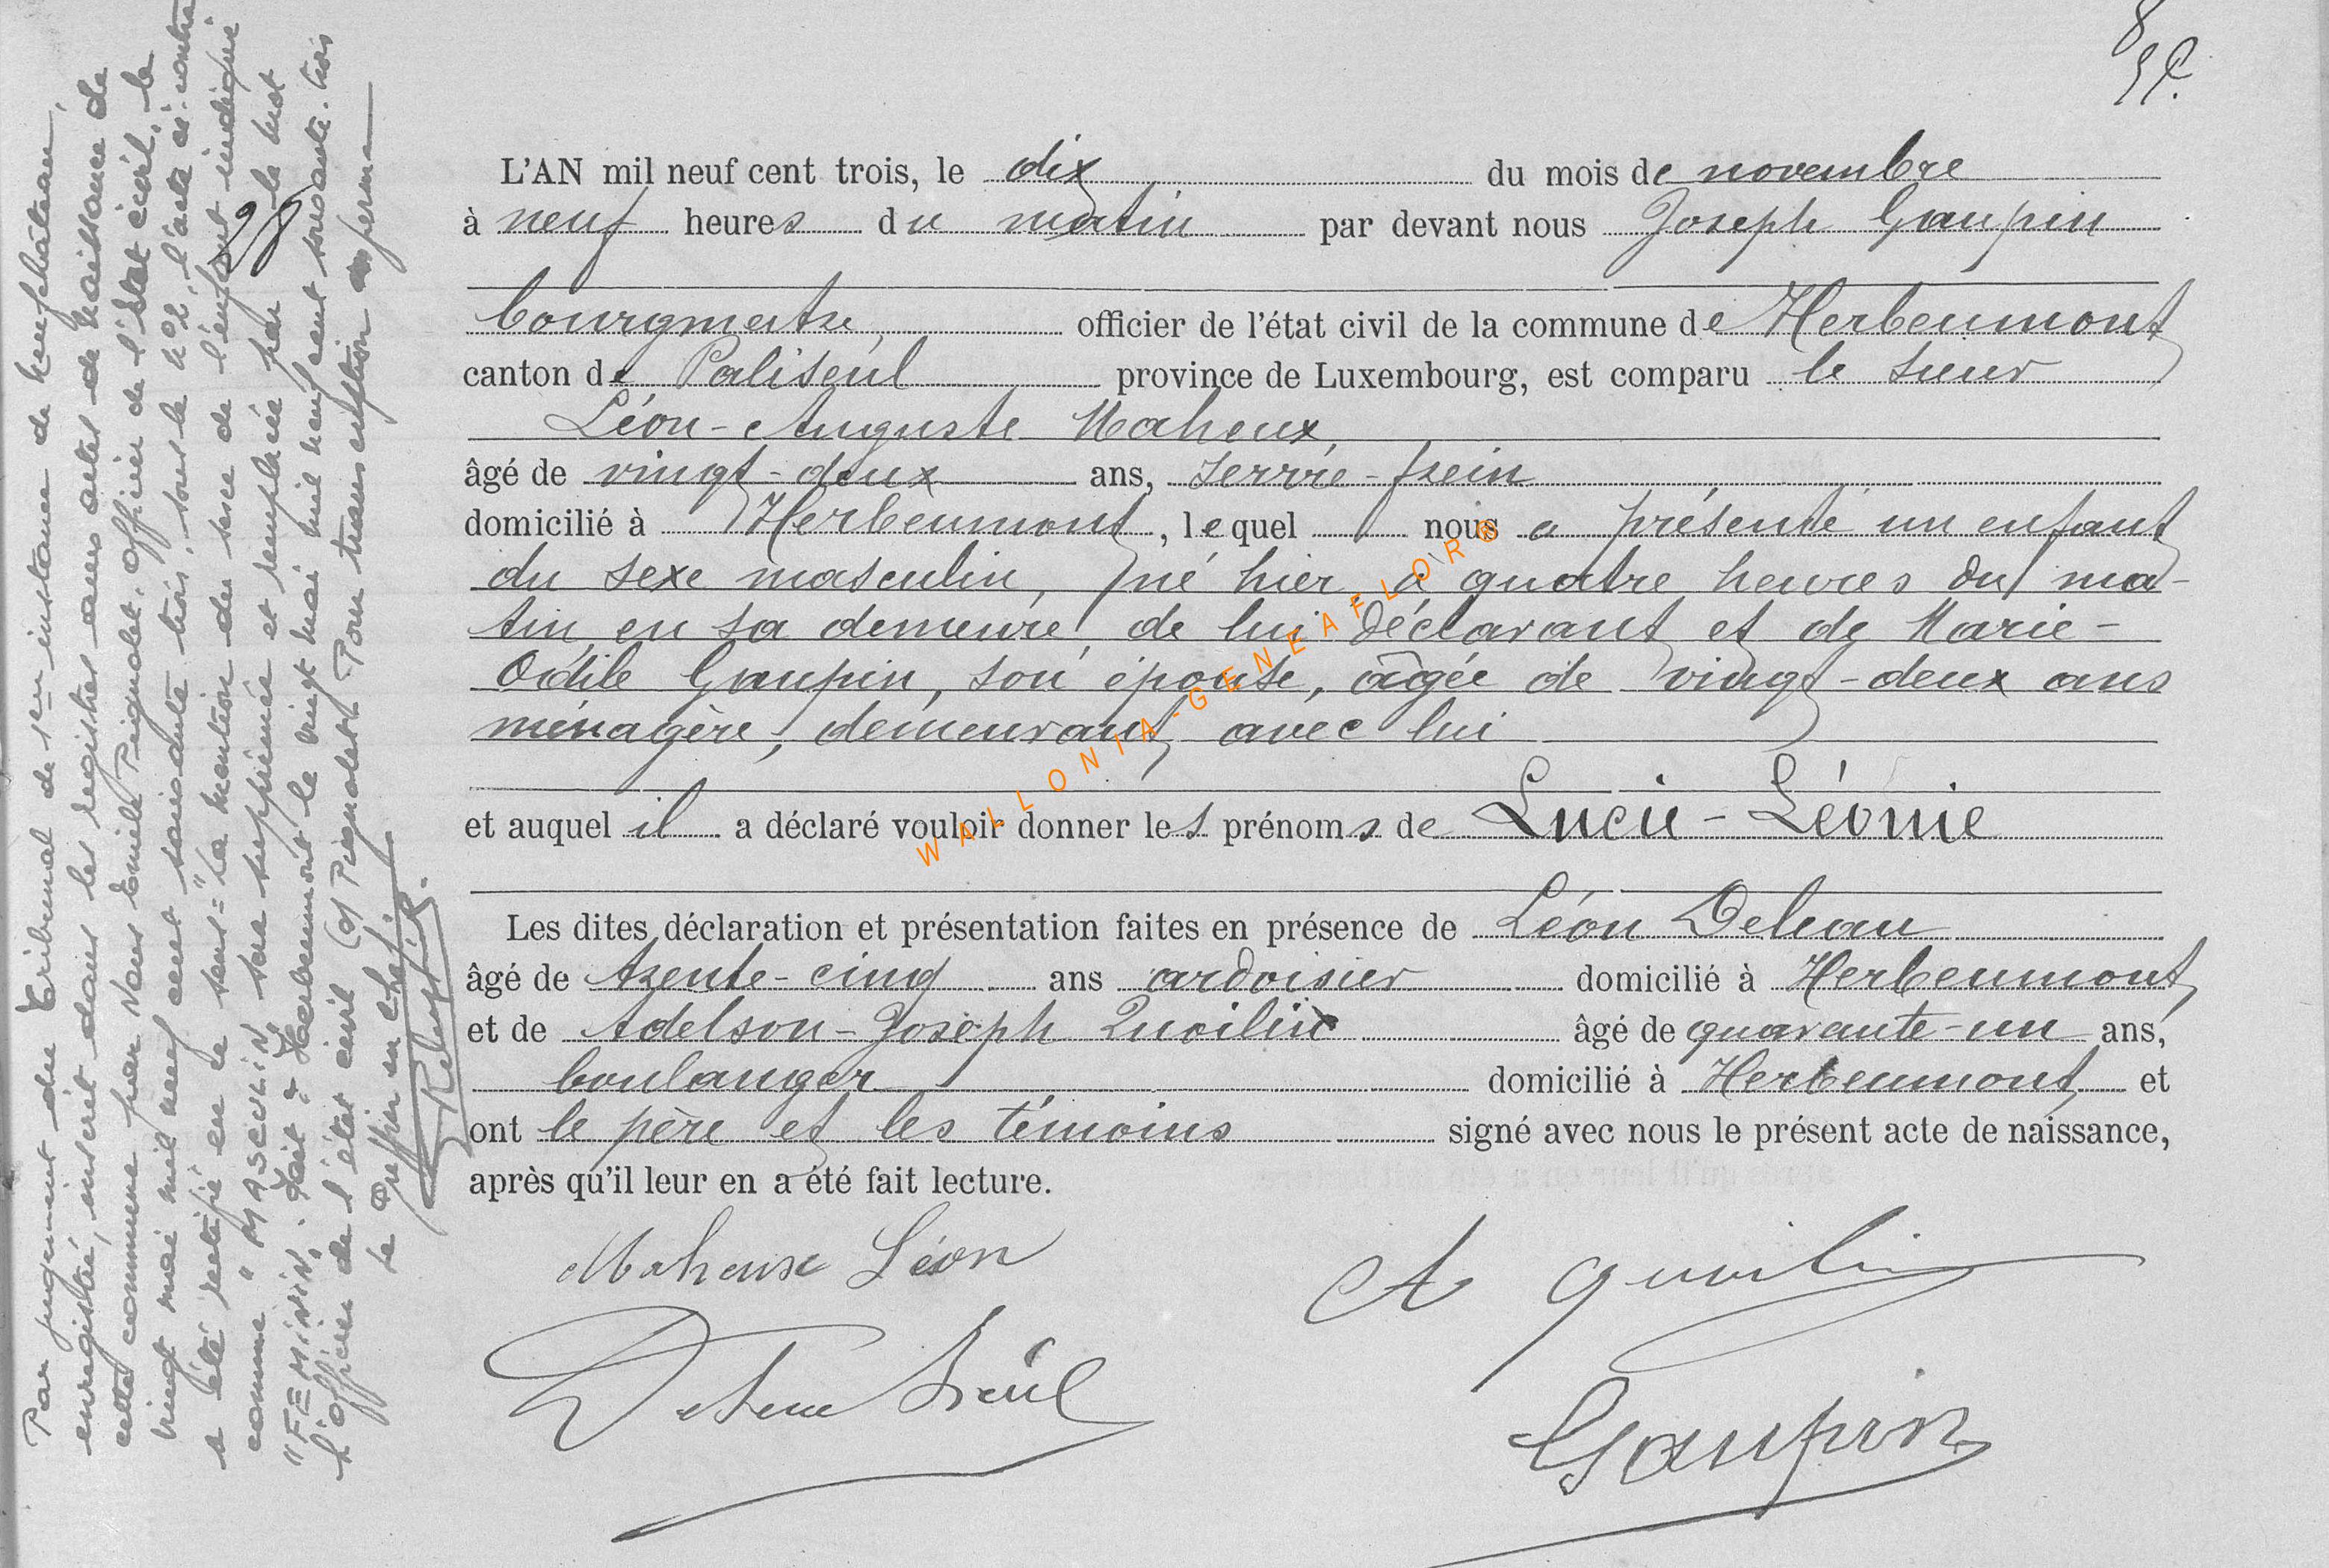 Par jugement du Tribunal de 1ère instance de Neufchâteau,
enregistré, inscrit dans les registres aux actes de naissance de
cette commune par Nous Emile Pignolet, officier de l'Etat civil, le
vingt mai mil neuf cent soixante trois, sous le n° 2, l'acte ci-contre
a été rectifié en ce sens = "la mention du sexe de l'enfant indiqué
comme "MASCULIN" sera supprimée et remplacée par le mot
"FEMININ". Fait à Herbeumont le vingt mai mil neuf cent soixante-trois
L'officier de l'état civil (s) Pignolet. Pour transcription conforme
Le Greffier en chef,
28
L'AN mil neuf cent trois, le dix du mois de novembre
à neuf heures du matin par devant nous Joseph Gaupin
bourgmestre, officier de l'état civil de la commune de Herbeumont
canton de Paliseul province de Luxembourg, est comparu le sieur
Léon-Auguste Maheux,
âgé de vingt-deux ans, serre-frein
domicilié à Herbeumont, lequel nous a présenté un enfant
du sexe masculin, né hier, à quatre heures du ma-
tin, en sa demeure, de lui déclarant et de Marie-
Odile Gaupin, son épouse, âgée de vingt-deux ans
ménagère, demeurant avec lui
et auquel il a déclaré vouloir donner les prénoms de Lucie-Léonie
Les dites déclaration et présentation faites en présence de Léon Deleau
âgé de trente-cinq ans ardoisier domicilié à Herbeumont,
et de Adelson-Joseph Quoilin âgé de quarante-un ans,
boulanger domicilié à Herbeumont, et
ont le père et les témoins signé avec nous le présent acte de naissance,
après qu'il leur en a été fait lecture.
Maheux Léon
A Quoilin
Gaupin
WALLONIA-GENEAFLOR®